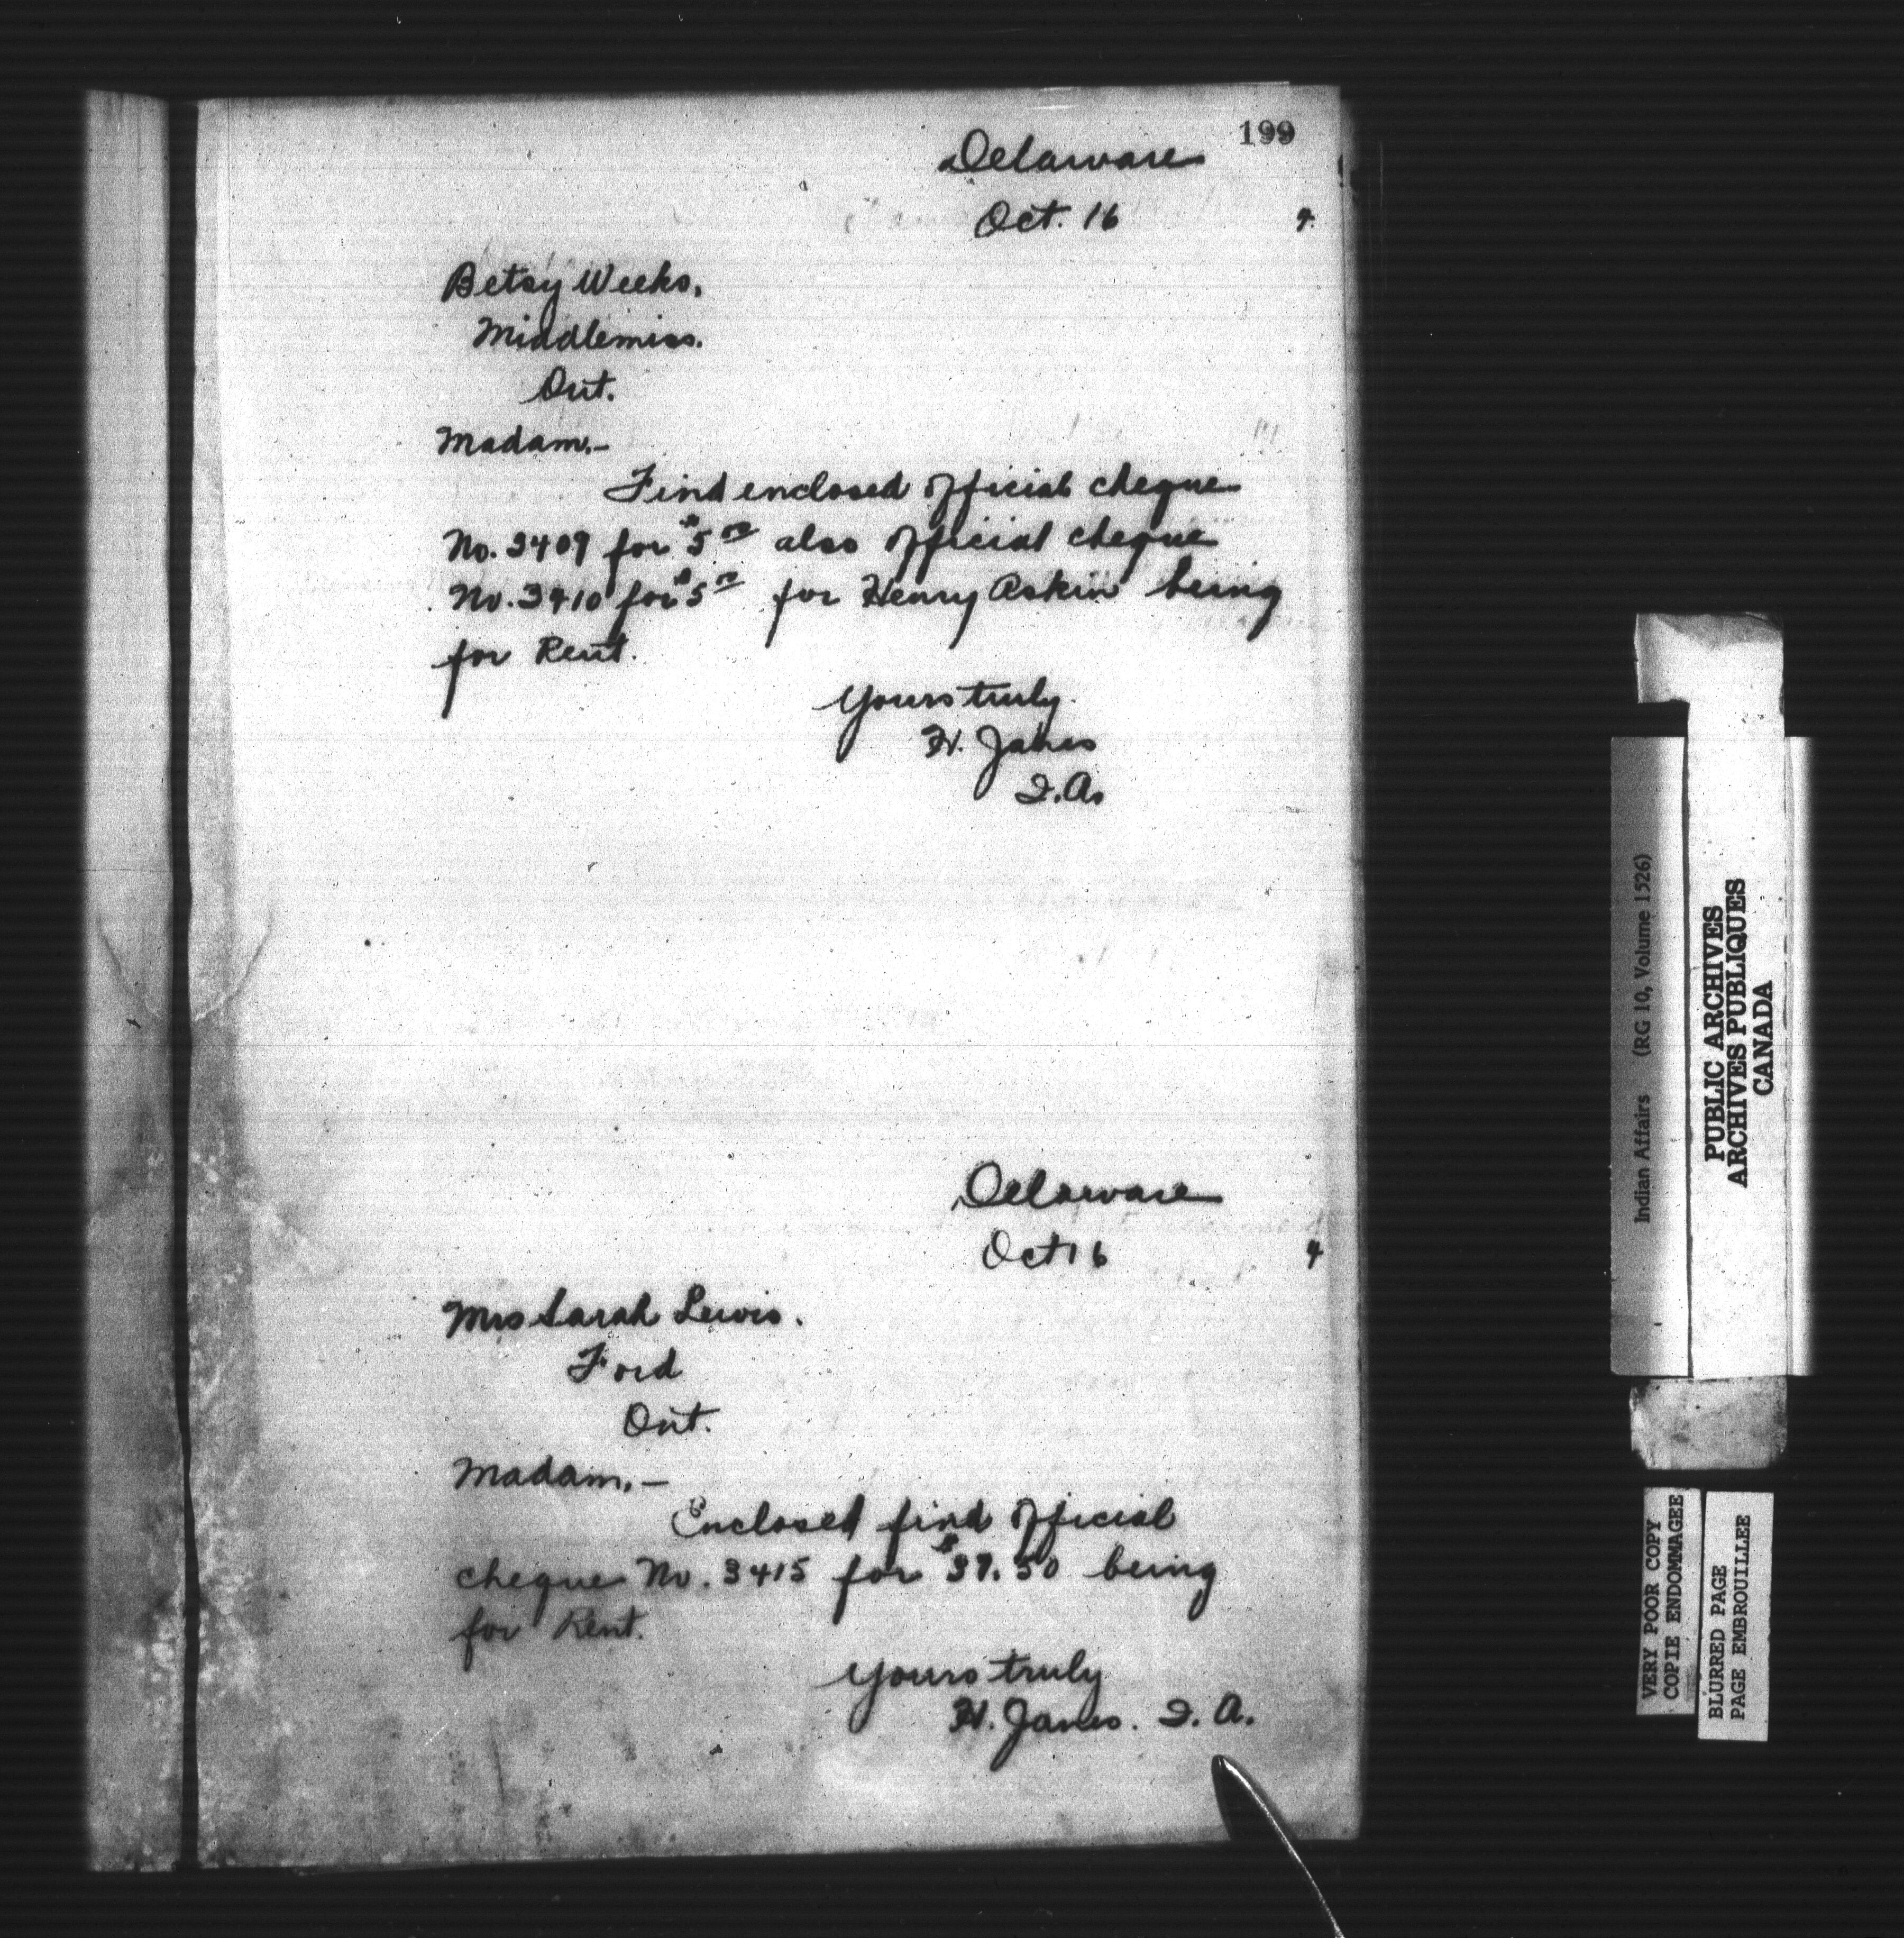 199
Delaware
Oct. 16 4
Betsy Weeks,
Middlemiss.
Ont.
Madam,-
Find enclosed official cheque
No. 3409 for $5 00 also official cheque
No. 3410 for $5 00 for Henry Askin being
for Rent.
Yours truly
H. Janes
I.A.
Delaware
Oct 16 4
Mrs Sarah Lewis.
Ford
Ont.
Madam,-
Enclosed find official
cheque No. 3415 for $37.50 being
for Rent.
Yours truly
H. Janes. I. A.
Indian Affairs (RG 10, Volume 1526)
PUBLIC ARCHIVES
ARCHIVES PUBLIQUES
CANADA
VERY POOR COPY
COPIE ENDOMMAGEE
BLURRED PAGE
PAGE EMBROUILLEE